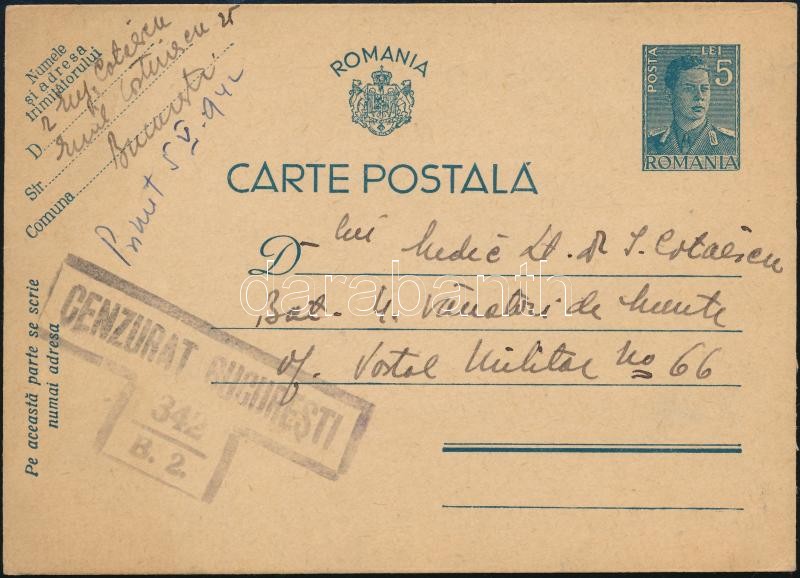 Numele
și adresa
trimițătorului
D.
Str.
Comuna București
Primit 5 V. 942
ROMANIA
POSTA LEI 5
ROMANIA
CARTE POSTALĂ
D lui Medic Lt. dr I. Cotăescu
Bat. 4 Vânători de Munte
Of. Postal Militar No 66
CENZURAT BUCUREȘTI
342
B. 2.
Pe această parte se scrie
numai adresa
darabanth